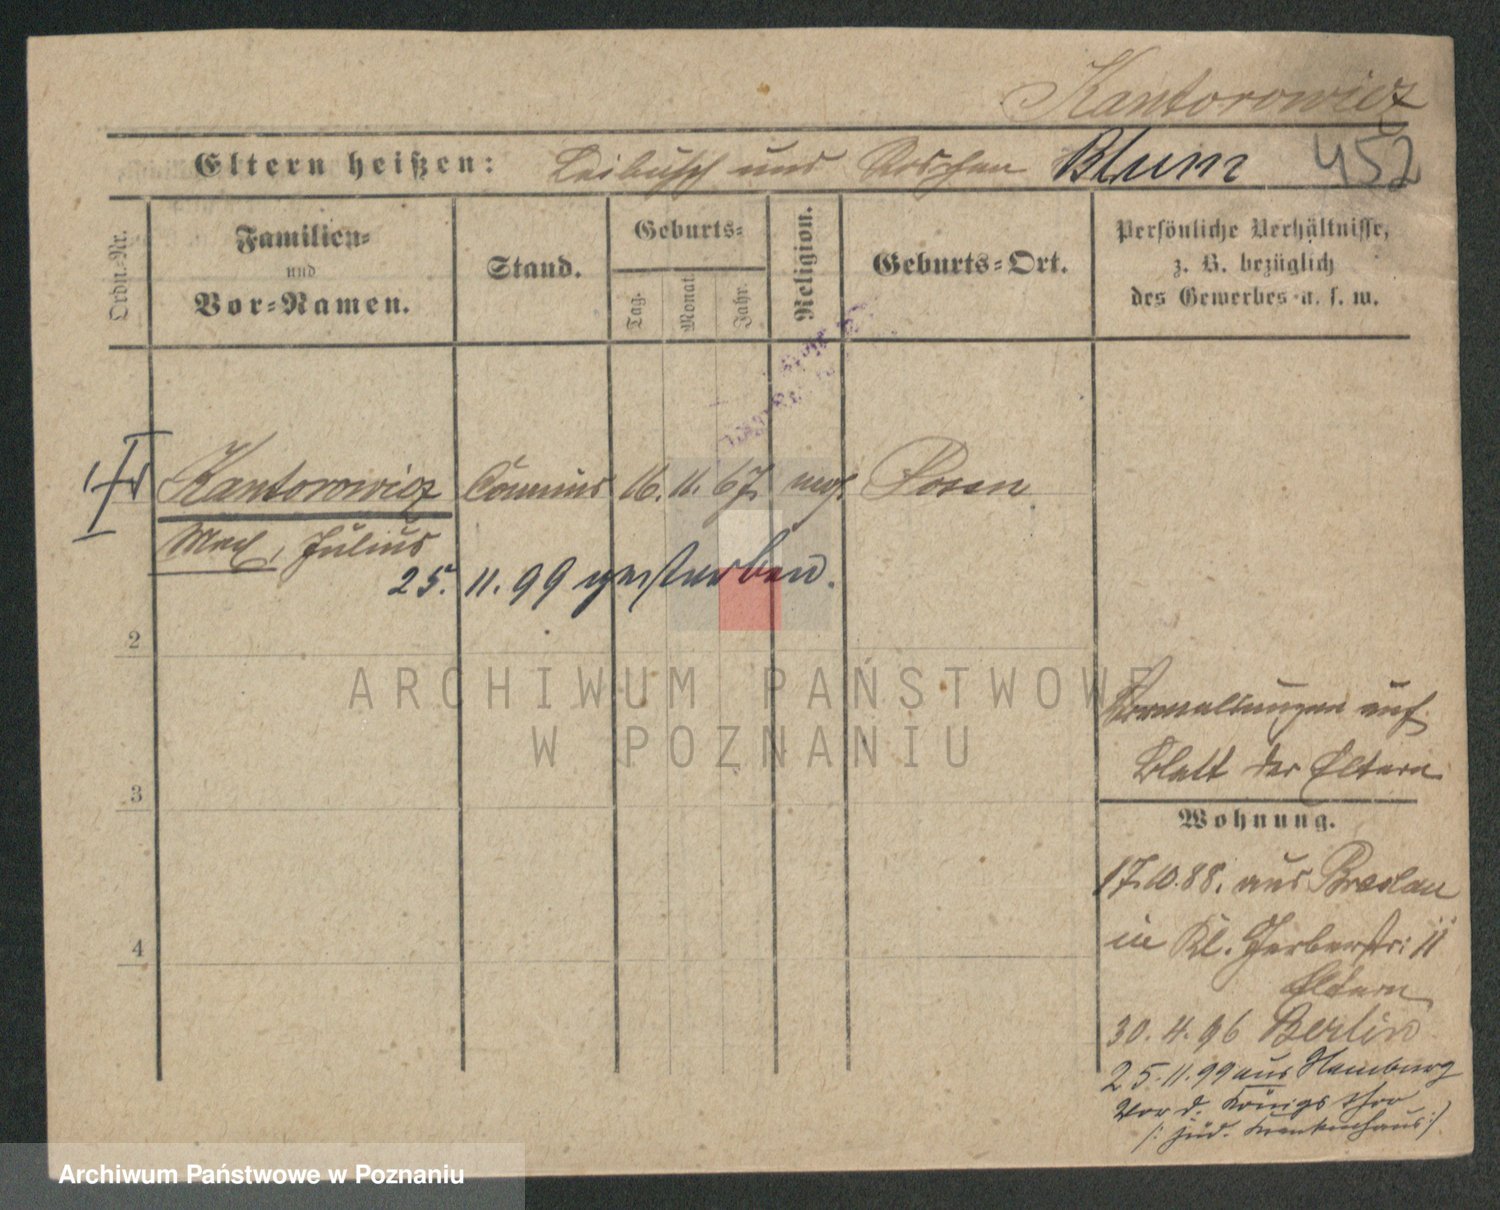 Kantorowicz
Eltern heißen: Leibusch und Röschen Blum 452
Ordn.-Nr.
Familien-
und
Vor-Namen.
Stand.
Geburts-
Tag.
Monat
Jahr.
Religion.
Geburts-Ort.
Persönliche Verhältnisse,
z. B. bezüglich
des Gewerbes u. s. w.
Kantorowicz Commis 16. 11. 67. mos. Posen
Max, Julius
25. 11. 99 gestorben.
2
3
4
auf
Blatt der Eltern
Wohnung.
17.10.88. aus Breslau
in Kl. Gerberstr: 11
Eltern
30. 4. 96 Berlin
25. 11. 99 aus Hamburg
Vor d. Königsthor
/: jüd. Krankenhaus :/
ARCHIWUM PAŃSTWOWE
W POZNANIU
Archiwum Państwowe w Poznaniu